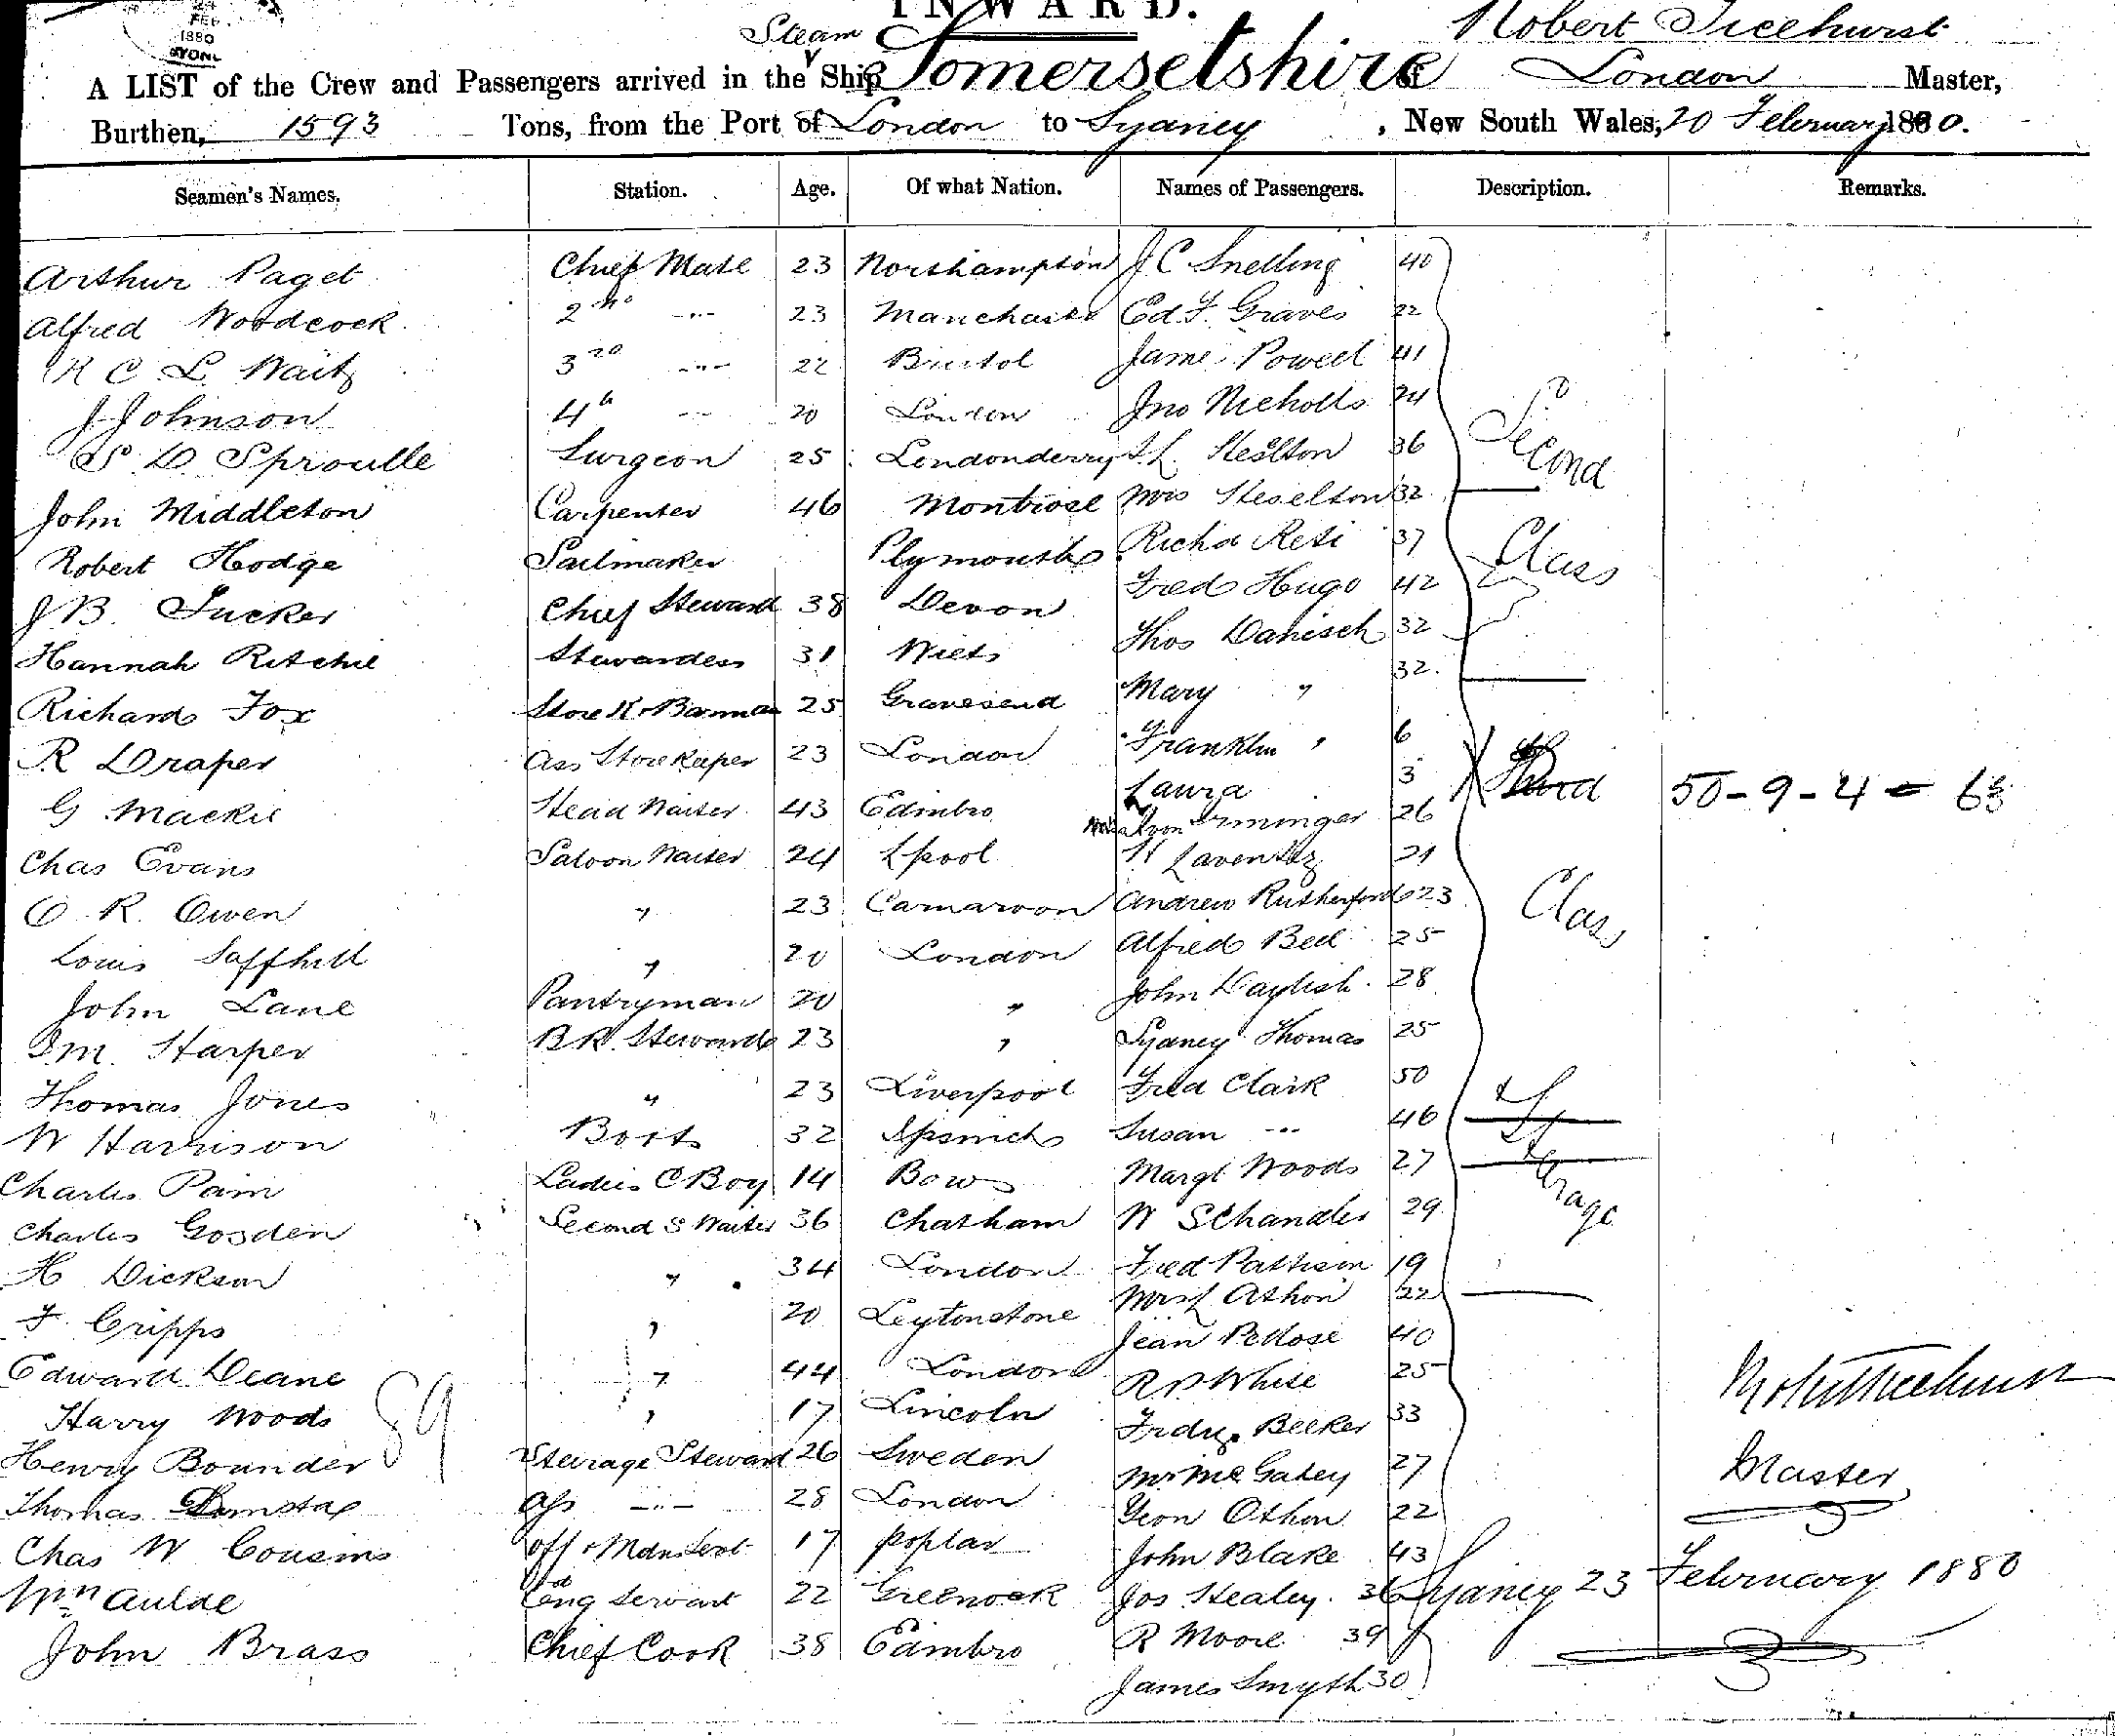 FEB
1880
INWARD.
Steam
Robert Ticehurst
A LIST of the Crew and Passengers arrived in the Ship Somersetshire of London Master,
Burthen, 1593 Tons, from the Port of London to Sydney, New South Wales, 20 February 1880.
Seamen's Names. Station. Age. Of what Nation. Names of Passengers. Description. Remarks.
Arthur Paget Chief Mate 23 Northampton J C Snelling 40
Alfred Woodcock 2nd -"- 23 Ed. F. Graves 22
R C L Wait 3rd -"- 22 Bristol James Powell 41
J Johnson 4th -"- 20 London Jno Nicholls 24 Second
S D Sproulle Surgeon 25 Londonderry 36
John Middleton Carpenter 46 Montrose Mrs Heselton 32
Robert Hodge Sailmaker Plymouth Richd 37 Class
J B Tucker Chief Steward 38 Devon Fred Hugo 42
Hannah Ritchie Stewardess 31 Thos Danisch 32
Richard Fox Store K + Barman 25 Gravesend Mary " 32.
R Draper Ass Storekeeper 23 London Franklin " 6
G Mackie Head Waiter 43 Edinbro Laura 3 Third 50-9-4 = 63
Irminger 26
Chas Evans Saloon Waiter 24 Lpool 21
O. R. Owen " 23 Carnarvon Andrew Rutherford 23 Class
Louis Saffhill " 20 London Alfred Bell 25
John Lane Pantryman 20 " John 28
Harper B R. Steward 23 " Sydney Thomas 25
Thomas Jones " 23 Liverpool Fred Clark 50
W Harrison Boots 32 Ipswich Susan -"- 46 & St
Charles Pain Ladies C Boy 14 Bow Margt Woods 27 erage
Charles Gosden Second S Waiter 36 Chatham W S Chandler 29
H Dickson " 34 London Fred Pattison 19
F. Cripps " 20 Leytonstone 22
Jean 40
Edward Deane " 44 London R White 25
Robt Ticehurst
Harry Woods 89 " 17 Lincoln Becker 33
Henry Bounder Steerage Steward 26 Sweden 27 Master
Thomas Ass -"- 28 London Othon 22
Chas W Cousins Off + Mdn Servt 17 Poplar John Blake 43
Wm Aulde Eng Servant 22 Greenock Jos Healey. 36 Sydney 23 February 1880
John Brass Chief Cook 38 Edinbro R Moore 39
James Smyth 30